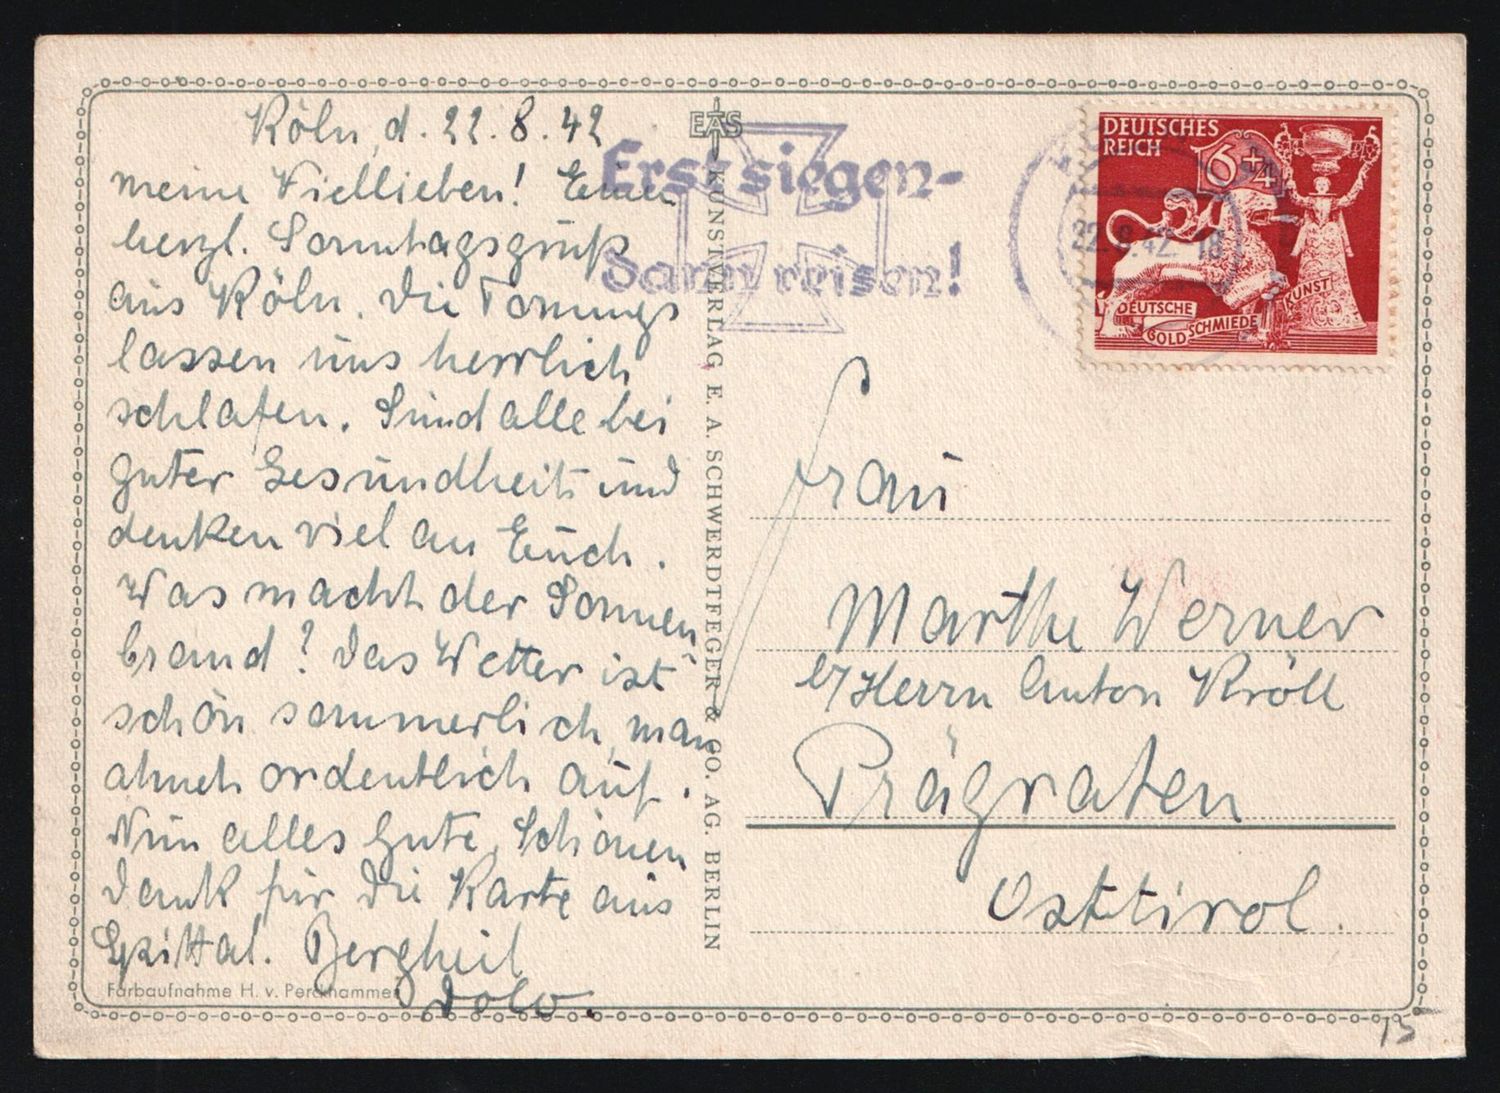 Köln, d. 22.8.42
meine Viellieben! Einen
herzl. Sonntagsgruß
aus Köln. Die Tommys
lassen uns herrlich
schlafen. Sind alle bei
guter Gesundheit und
denken viel an Euch.
Was macht der Sonnen
brand? Das Wetter ist
schön sommerlich, man
atmet ordentlich auf.
Nun alles Gute, Schönen
Dank für die Karte aus
Spittal. Bergheil
Farbaufnahme H. v. Perckhammer
EAS
KUNSTVERLAG E. A. SCHWERDTFEGER & CO. AG. BERLIN
Erst siegen-
dann reisen!
22.8.42. 18
DEUTSCHES
REICH
6+4
DEUTSCHE
GOLDSCHMIEDE
KUNST
Frau
Marthe Werner
b/ Herrn Anton Kröll
Prägraten
Osttirol.